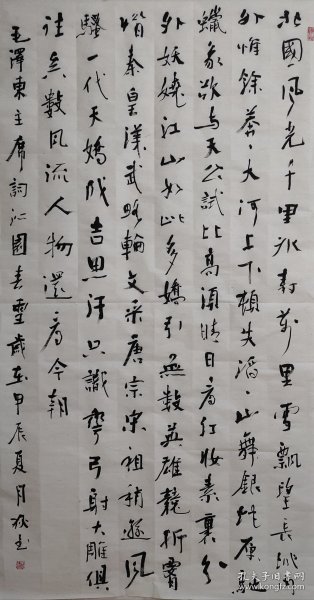 北國風光千里冰封萬里雪飄望長城內
外惟餘莽莽大河上下頓失滔滔山舞銀蛇原馳
蠟象欲與天公試比高須晴日看紅妝素裹分
外妖嬈江山如此多嬌引無數英雄競折腰
惜秦皇漢武略輸文采唐宗宋祖稍遜風
騷一代天嬌成吉思汗只識彎弓射大雕俱
往矣數風流人物還看今朝
毛澤東主席詞沁園春雪歲在甲辰夏月
孔夫子旧书网